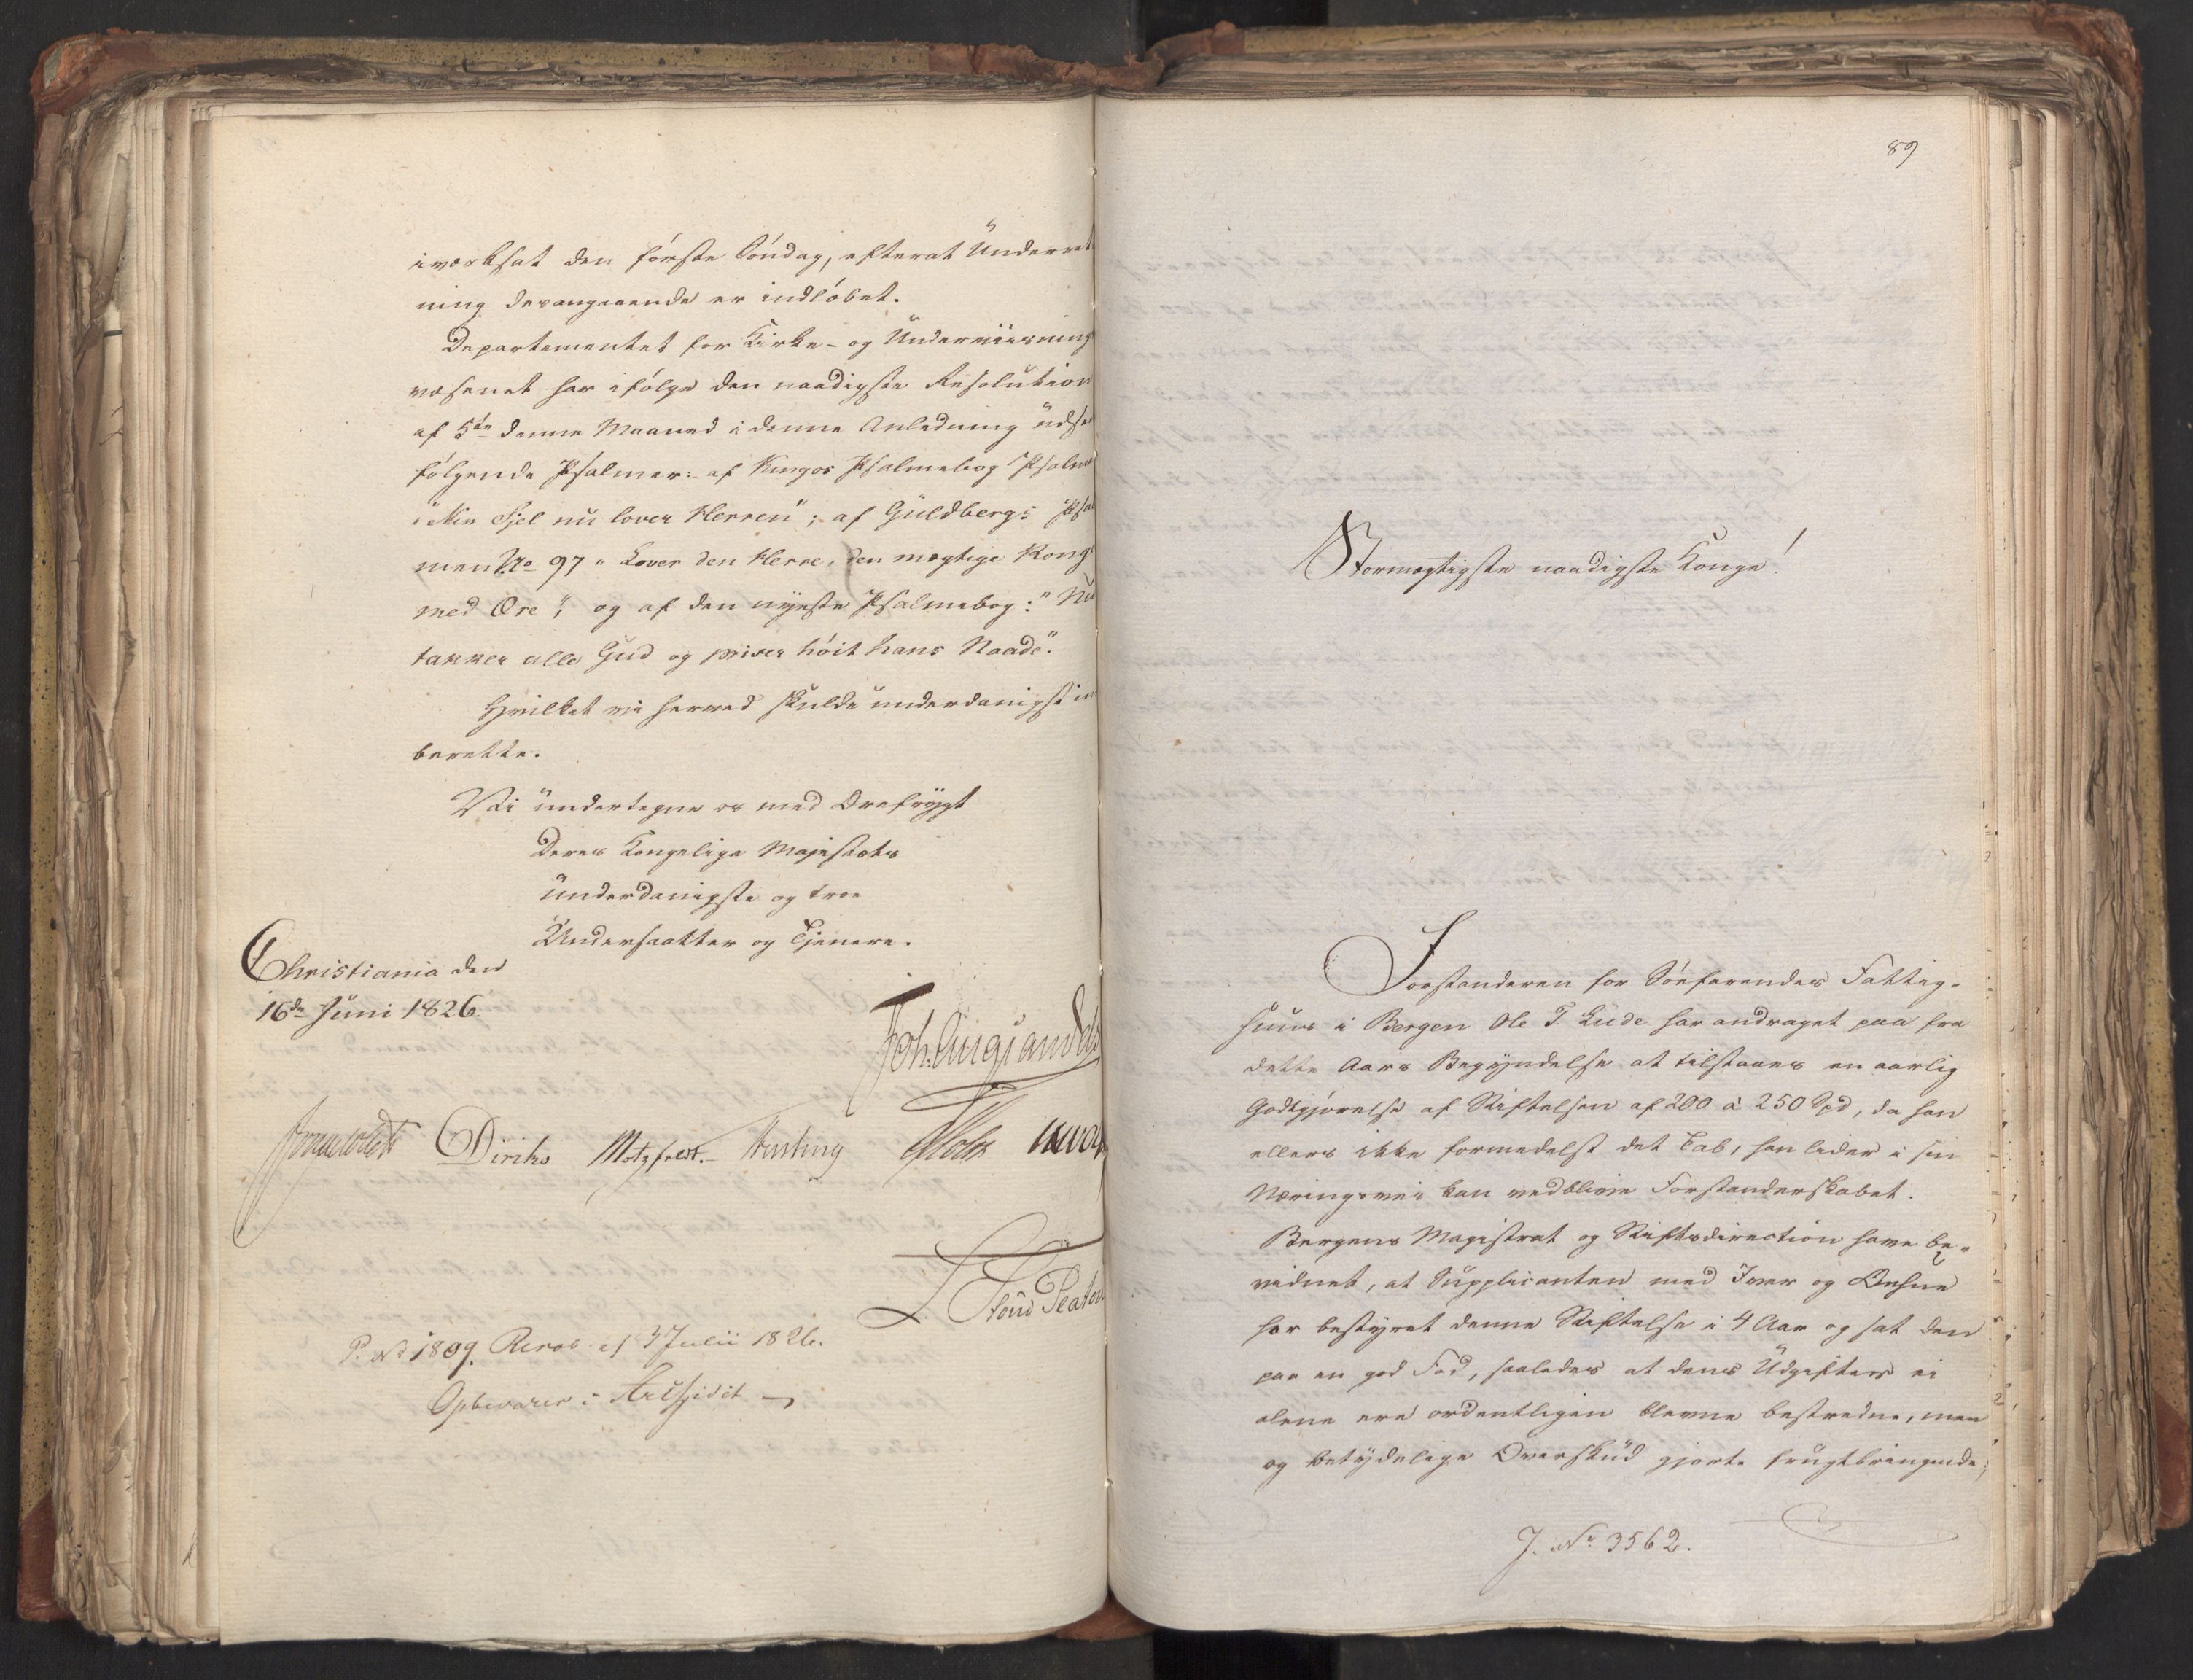 iværksat den første Søndag, efterat Underret
ning desangaaende er indløbet.
Departementet for Kirke- og Underviisnings
væsenet har ifølge den naadigste Resolution
af 5te denne Maaned i denne Anledning udseet
følgende Psalmer: af Kingos Psalmebog Psalmen
"Min Sjel nu lover Herren"; af Guldbergs Psal
men No 97 "Lover den Herre, den mægtige Konge
med Ære", og af den nyeste Psalmebog: "Nu
takker alle Gud og priser høit hans Naade".
Hvilket vi herved skulde underdanigst ind
berette.
Vi undertegne os med Ærefrygt
Deres Kongelige Majestæts
underdanigste og troe
Undersaatter og Tjenere.
Christiania den
16de Juni 1826.
Joh. Aug. Sandels
Sommerhielm Diriks Motzfeldt. Fasting Holst
L. Stoud Platou
P. No 1809. Resol: af 3 Julii 1826.
Opbevares i Archivet
89
Stormægtigste naadigste Konge!
Forstanderen for Søefarendes Fattig-
huus i Bergen Ole T. Lude har andraget paa fra
dette Aars Begyndelse at tilstaaes en aarlig
Godtgjørelse af Stiftelsen af 200 à 250 Spd, da han
ellers ikke formedelst det Tab, han lider i sin
Næringsvei kan vedblive Forstanderskabet.
Bergens Magistrat og Stiftsdirection have be-
vidnet, at Supplicanten med Iver og Omhue
har bestyret denne Stiftelse i 4 Aar og sat den
paa en god Fod, saaledes at dens Udgifter ei
alene ere ordentligen blevne bestredne, men
og betydelige Overskud gjorte frugtbringende;
J. No 3562.